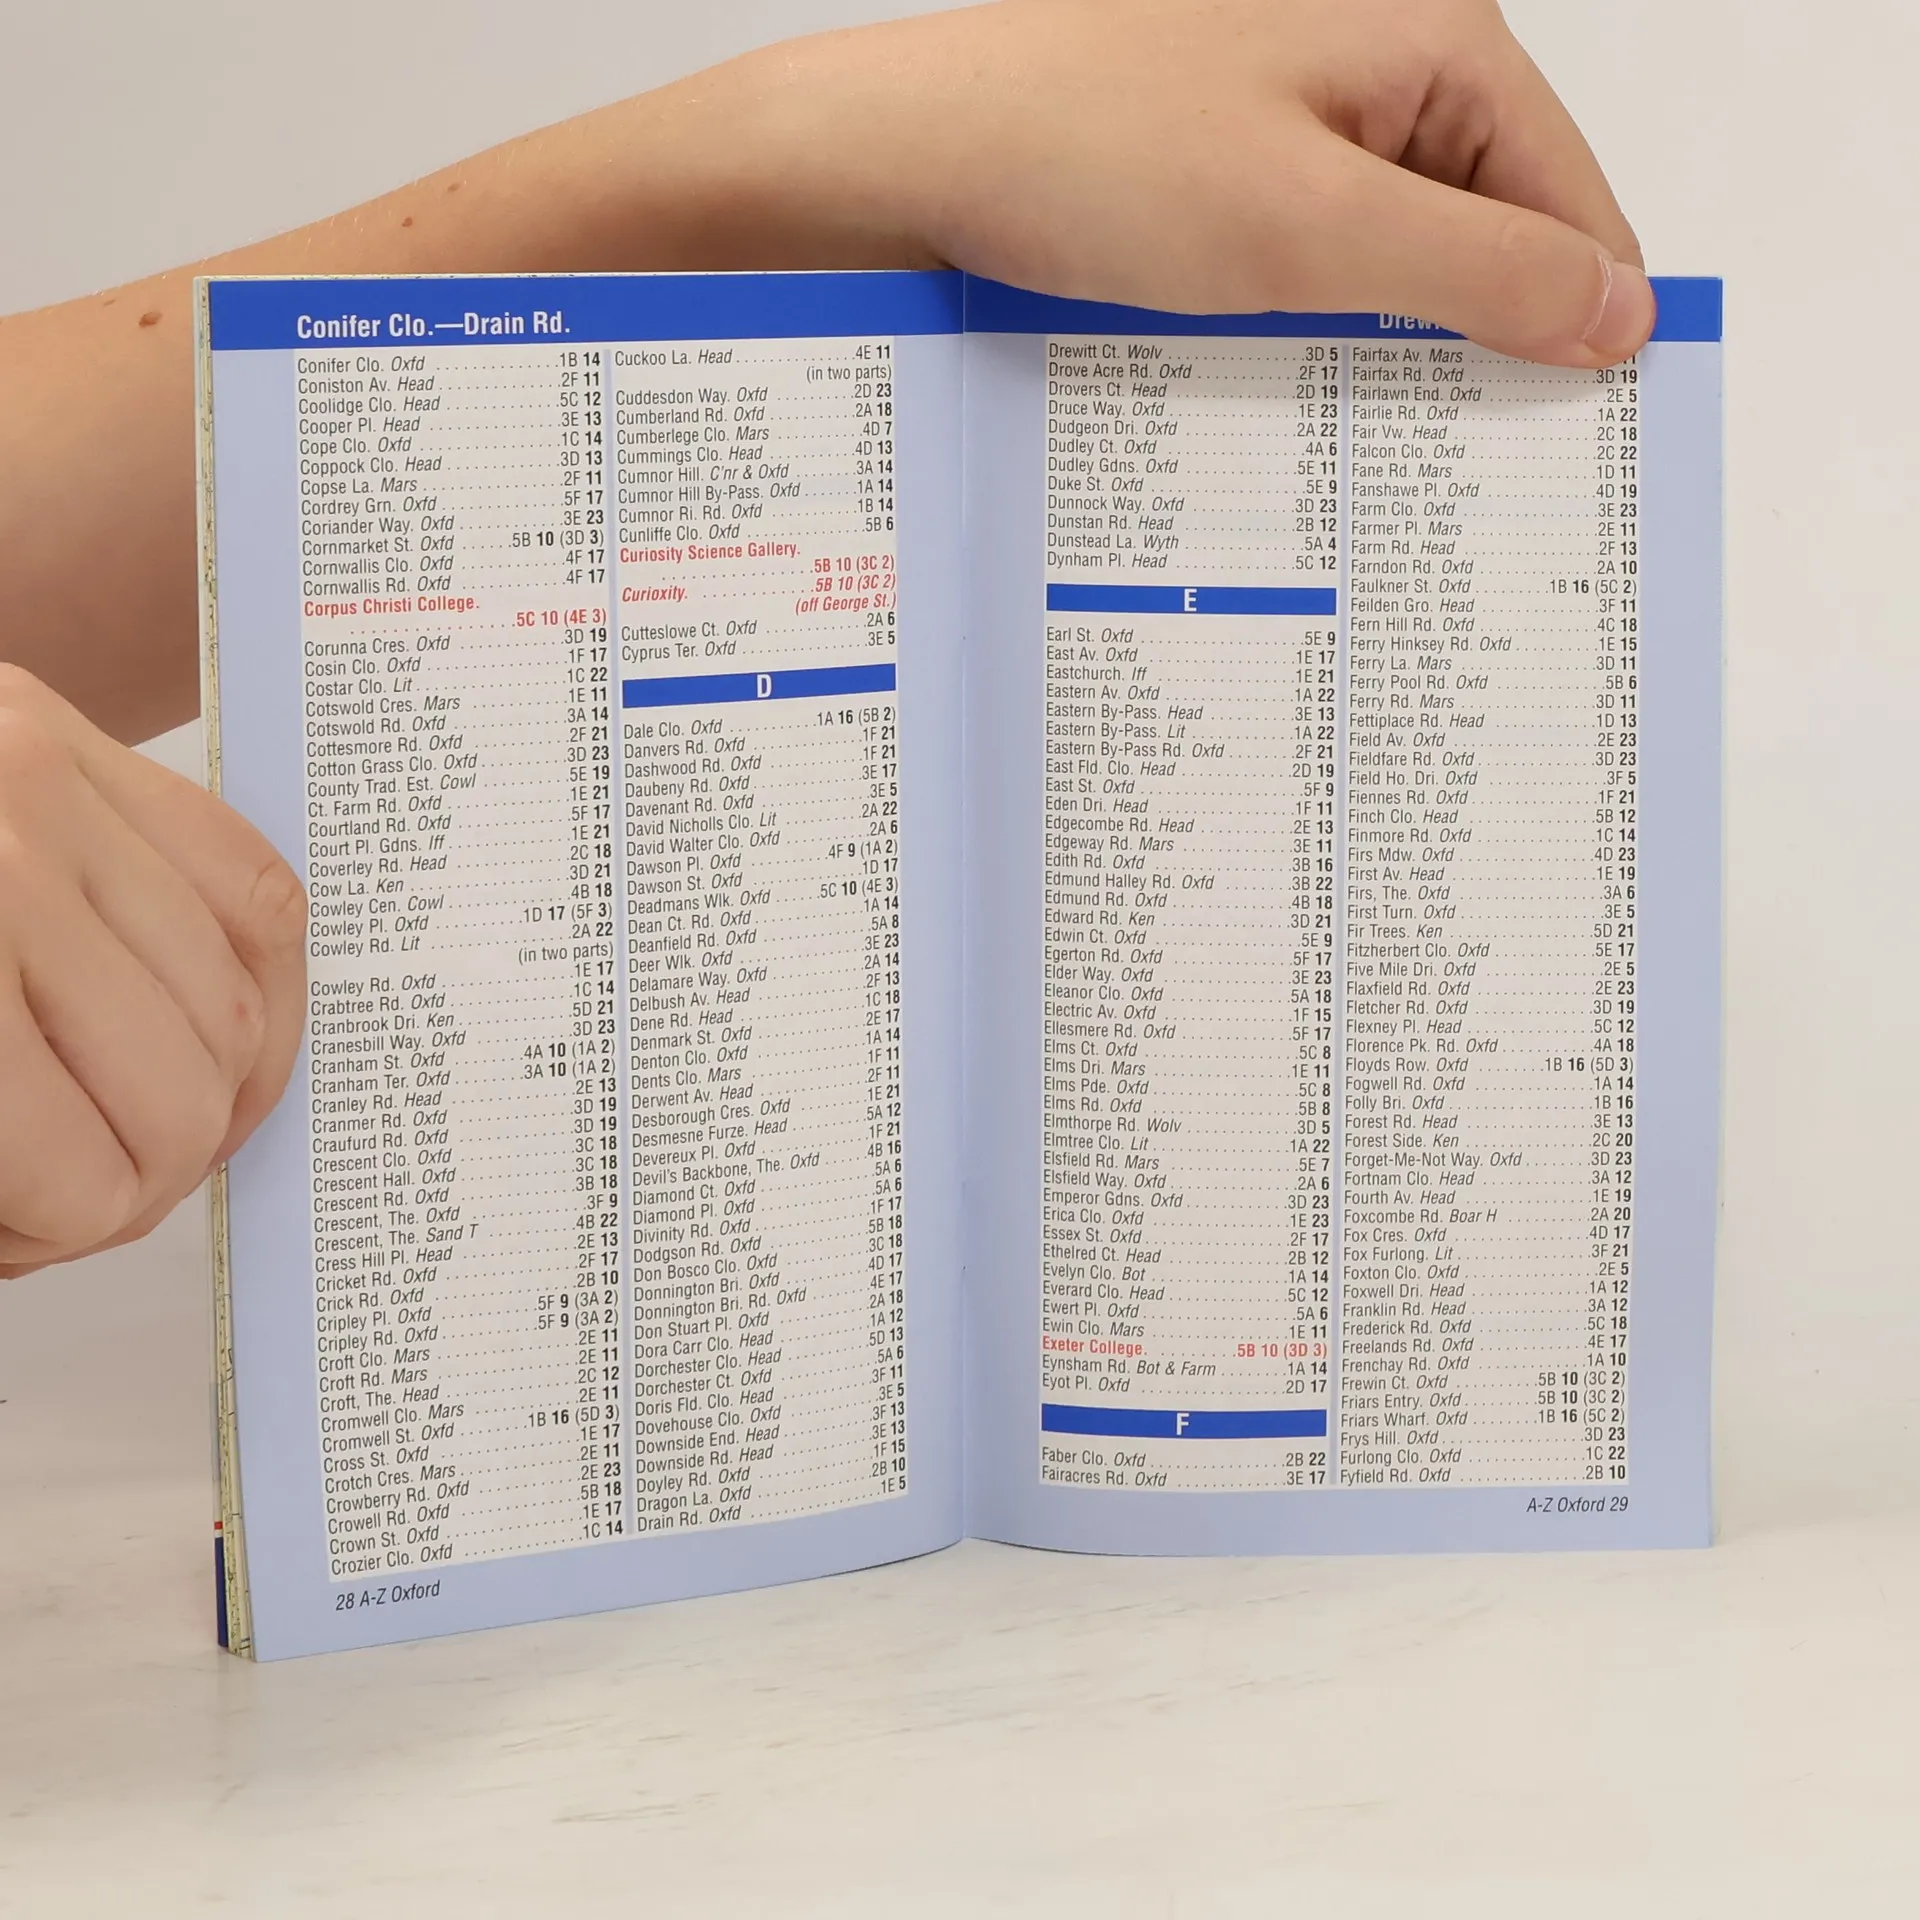 Conifer Clo.—Drain Rd.
Conifer Clo. Oxfd 1B 14
Coniston Av. Head 2F 11
Coolidge Clo. Head 5C 12
Cooper Pl. Head 3E 13
Cope Clo. Oxfd 1C 14
Coppock Clo. Head 3D 13
Copse La. Mars 2F 11
Cordrey Grn. Oxfd 5F 17
Coriander Way. Oxfd 3E 23
Cornmarket St. Oxfd 5B 10 (3D 3)
Cornwallis Clo. Oxfd 4F 17
Cornwallis Rd. Oxfd 4F 17
Corpus Christi College.
5C 10 (4E 3)
Corunna Cres. Oxfd 3D 19
Cosin Clo. Oxfd 1F 17
Costar Clo. Lit 1C 22
Cotswold Cres. Mars 1E 11
Cotswold Rd. Oxfd 3A 14
Cottesmore Rd. Oxfd 2F 21
Cotton Grass Clo. Oxfd 3D 23
County Trad. Est. Cowl 5E 19
Ct. Farm Rd. Oxfd 1E 21
Courtland Rd. Oxfd 5F 17
Court Pl. Gdns. Iff 1E 21
Coverley Rd. Head 2C 18
Cow La. Ken 3D 21
Cowley Cen. Cowl 4B 18
Cowley Pl. Oxfd 1D 17 (5F 3)
Cowley Rd. Lit 2A 22
(in two parts)
Cowley Rd. Oxfd 1E 17
Crabtree Rd. Oxfd 1C 14
Cranbrook Dri. Ken 5D 21
Cranesbill Way. Oxfd 3D 23
Cranham St. Oxfd 4A 10 (1A 2)
Cranham Ter. Oxfd 3A 10 (1A 2)
Cranley Rd. Head 2E 13
Cranmer Rd. Oxfd 3D 19
Craufurd Rd. Oxfd 3D 19
Crescent Clo. Oxfd 3C 18
Crescent Hall. Oxfd 3C 18
Crescent Rd. Oxfd 3B 18
Crescent, The. Oxfd 3F 9
Crescent, The. Sand T 4B 22
Cress Hill Pl. Head 2E 13
Cricket Rd. Oxfd 2F 17
Crick Rd. Oxfd 2B 10
Cripley Pl. Oxfd 5F 9 (3A 2)
Cripley Rd. Oxfd 5F 9 (3A 2)
Croft Clo. Mars 2E 11
Croft Rd. Mars 2E 11
Croft, The. Head 2C 12
Cromwell Clo. Mars 2E 11
Cromwell St. Oxfd 1B 16 (5D 3)
Cross St. Oxfd 1E 17
Crotch Cres. Mars 2E 11
Crowberry Rd. Oxfd 2E 23
Crowell Rd. Oxfd 5B 18
Crown St. Oxfd 1E 17
Crozier Clo. Oxfd 1C 14
Cuckoo La. Head 4E 11
(in two parts)
Cuddesdon Way. Oxfd 2D 23
Cumberland Rd. Oxfd 2A 18
Cumberlege Clo. Mars 4D 7
Cummings Clo. Head 4D 13
Cumnor Hill. C'nr & Oxfd 3A 14
Cumnor Hill By-Pass. Oxfd 1A 14
Cumnor Ri. Rd. Oxfd 1B 14
Cunliffe Clo. Oxfd 5B 6
Curiosity Science Gallery.
5B 10 (3C 2)
Curioxity. 5B 10 (3C 2)
(off George St.)
Cutteslowe Ct. Oxfd 2A 6
Cyprus Ter. Oxfd 3E 5
D
Dale Clo. Oxfd 1A 16 (5B 2)
Danvers Rd. Oxfd 1F 21
Dashwood Rd. Oxfd 1F 21
Daubeny Rd. Oxfd 3E 17
Davenant Rd. Oxfd 3E 5
David Nicholls Clo. Lit 2A 22
David Walter Clo. Oxfd 2A 6
Dawson Pl. Oxfd 4F 9 (1A 2)
Dawson St. Oxfd 1D 17
Deadmans Wlk. Oxfd 5C 10 (4E 3)
Dean Ct. Rd. Oxfd 1A 14
Deanfield Rd. Oxfd 5A 8
Deer Wlk. Oxfd 3E 23
Delamare Way. Oxfd 2A 14
Delbush Av. Head 2F 13
Dene Rd. Head 1C 18
Denmark St. Oxfd 2E 17
Denton Clo. Oxfd 1A 14
Dents Clo. Mars 1F 11
Derwent Av. Head 2F 11
Desborough Cres. Oxfd 1E 21
Desmesne Furze. Head 5A 12
Devereux Pl. Oxfd 1F 21
Devil's Backbone, The. Oxfd 4B 16
Diamond Ct. Oxfd 5A 6
Diamond Pl. Oxfd 5A 6
Divinity Rd. Oxfd 1F 17
Dodgson Rd. Oxfd 5B 18
Don Bosco Clo. Oxfd 3C 18
Donnington Bri. Oxfd 4D 17
Donnington Bri. Rd. Oxfd 4E 17
Don Stuart Pl. Oxfd 2A 18
Dora Carr Clo. Head 1A 12
Dorchester Clo. Head 5D 13
Dorchester Ct. Oxfd 5A 6
Doris Fld. Clo. Head 3F 11
Dovehouse Clo. Oxfd 3E 5
Downside End. Head 3F 13
Downside Rd. Head 3E 13
Doyley Rd. Oxfd 1F 15
Dragon La. Oxfd 2B 10
Drain Rd. Oxfd 1E 5
28 A-Z Oxford
Drewitt Ct. Wolv 3D 5
Drove Acre Rd. Oxfd 2F 17
Drovers Ct. Head 2D 19
Druce Way. Oxfd 1E 23
Dudgeon Dri. Oxfd 2A 22
Dudley Ct. Oxfd 4A 6
Dudley Gdns. Oxfd 5E 11
Duke St. Oxfd 5E 9
Dunnock Way. Oxfd 3D 23
Dunstan Rd. Head 2B 12
Dunstead La. Wyth 5A 4
Dynham Pl. Head 5C 12
E
Earl St. Oxfd 5E 9
East Av. Oxfd 1E 17
Eastchurch. Iff 1E 21
Eastern Av. Oxfd 1A 22
Eastern By-Pass. Head 3E 13
Eastern By-Pass. Lit 1A 22
Eastern By-Pass Rd. Oxfd 2F 21
East Fld. Clo. Head 2D 19
East St. Oxfd 5F 9
Eden Dri. Head 1F 11
Edgecombe Rd. Head 2E 13
Edgeway Rd. Mars 3E 11
Edith Rd. Oxfd 3B 16
Edmund Halley Rd. Oxfd 3B 22
Edmund Rd. Oxfd 4B 18
Edward Rd. Ken 3D 21
Edwin Ct. Oxfd 5E 9
Egerton Rd. Oxfd 5F 17
Elder Way. Oxfd 3E 23
Eleanor Clo. Oxfd 5A 18
Electric Av. Oxfd 1F 15
Ellesmere Rd. Oxfd 5F 17
Elms Ct. Oxfd 5C 8
Elms Dri. Mars 1E 11
Elms Pde. Oxfd 5C 8
Elms Rd. Oxfd 5B 8
Elmthorpe Rd. Wolv 3D 5
Elmtree Clo. Lit 1A 22
Elsfield Rd. Mars 5E 7
Elsfield Way. Oxfd 2A 6
Emperor Gdns. Oxfd 3D 23
Erica Clo. Oxfd 1E 23
Essex St. Oxfd 2F 17
Ethelred Ct. Head 2B 12
Evelyn Clo. Bot 1A 14
Everard Clo. Head 5C 12
Ewert Pl. Oxfd 5A 6
Ewin Clo. Mars 1E 11
Exeter College. 5B 10 (3D 3)
Eynsham Rd. Bot & Farm 1A 14
Eyot Pl. Oxfd 2D 17
F
Faber Clo. Oxfd 2B 22
Fairacres Rd. Oxfd 3E 17
Fairfax Av. Mars 11
Fairfax Rd. Oxfd 3D 19
Fairlawn End. Oxfd 2E 5
Fairlie Rd. Oxfd 1A 22
Fair Vw. Head 2C 18
Falcon Clo. Oxfd 2C 22
Fane Rd. Mars 1D 11
Fanshawe Pl. Oxfd 4D 19
Farm Clo. Oxfd 3E 23
Farmer Pl. Mars 2E 11
Farm Rd. Head 2F 13
Farndon Rd. Oxfd 2A 10
Faulkner St. Oxfd 1B 16 (5C 2)
Feilden Gro. Head 3F 11
Fern Hill Rd. Oxfd 4C 18
Ferry Hinksey Rd. Oxfd 1E 15
Ferry La. Mars 3D 11
Ferry Pool Rd. Oxfd 5B 6
Ferry Rd. Mars 3D 11
Fettiplace Rd. Head 1D 13
Field Av. Oxfd 2E 23
Fieldfare Rd. Oxfd 3D 23
Field Ho. Dri. Oxfd 3F 5
Fiennes Rd. Oxfd 1F 21
Finch Clo. Head 5B 12
Finmore Rd. Oxfd 1C 14
Firs Mdw. Oxfd 4D 23
First Av. Head 1E 19
Firs, The. Oxfd 3A 6
First Turn. Oxfd 3E 5
Fir Trees. Ken 5D 21
Fitzherbert Clo. Oxfd 5E 17
Five Mile Dri. Oxfd 2E 5
Flaxfield Rd. Oxfd 2E 23
Fletcher Rd. Oxfd 3D 19
Flexney Pl. Head 5C 12
Florence Pk. Rd. Oxfd 4A 18
Floyds Row. Oxfd 1B 16 (5D 3)
Fogwell Rd. Oxfd 1A 14
Folly Bri. Oxfd 1B 16
Forest Rd. Head 3E 13
Forest Side. Ken 2C 20
Forget-Me-Not Way. Oxfd 3D 23
Fortnam Clo. Head 3A 12
Fourth Av. Head 1E 19
Foxcombe Rd. Boar H 2A 20
Fox Cres. Oxfd 4D 17
Fox Furlong. Lit 3F 21
Foxton Clo. Oxfd 2E 5
Foxwell Dri. Head 1A 12
Franklin Rd. Head 3A 12
Frederick Rd. Oxfd 5C 18
Freelands Rd. Oxfd 4E 17
Frenchay Rd. Oxfd 1A 10
Frewin Ct. Oxfd 5B 10 (3C 2)
Friars Entry. Oxfd 5B 10 (3C 2)
Friars Wharf. Oxfd 1B 16 (5C 2)
Frys Hill. Oxfd 3D 23
Furlong Clo. Oxfd 1C 22
Fyfield Rd. Oxfd 2B 10
A-Z Oxford 29